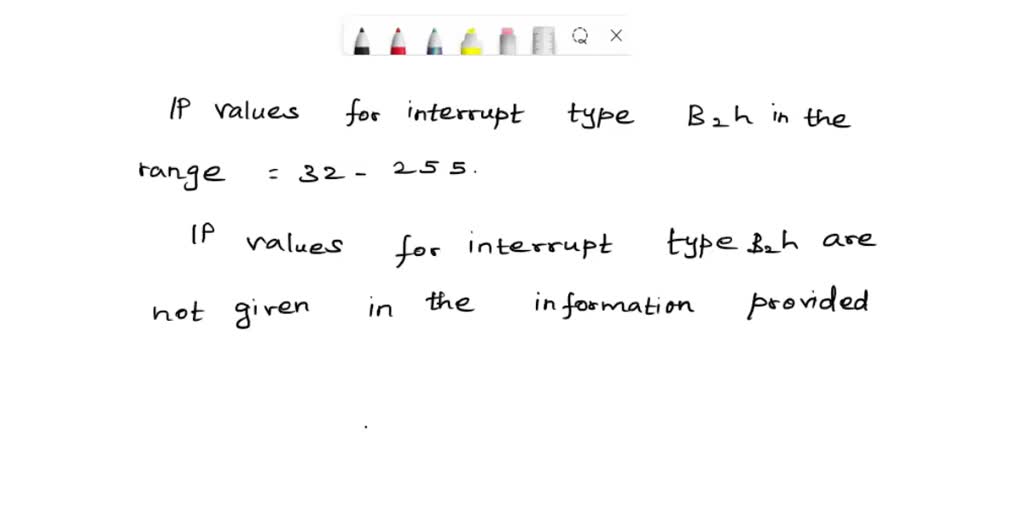 IP values for interrupt type B2h in the
range = 32 - 255.
IP values for interrupt type B2h are
not given in the information provided